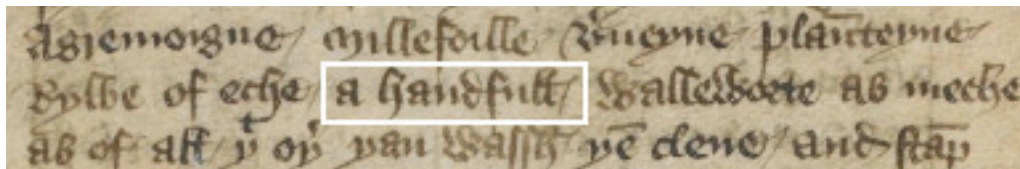 Agremoigne millefoille v̓ueyne plācteyne
Rylbe of eche a handfull walleworte as meche
as of all yͭ oy̓ yan wassh yē clene and stāp